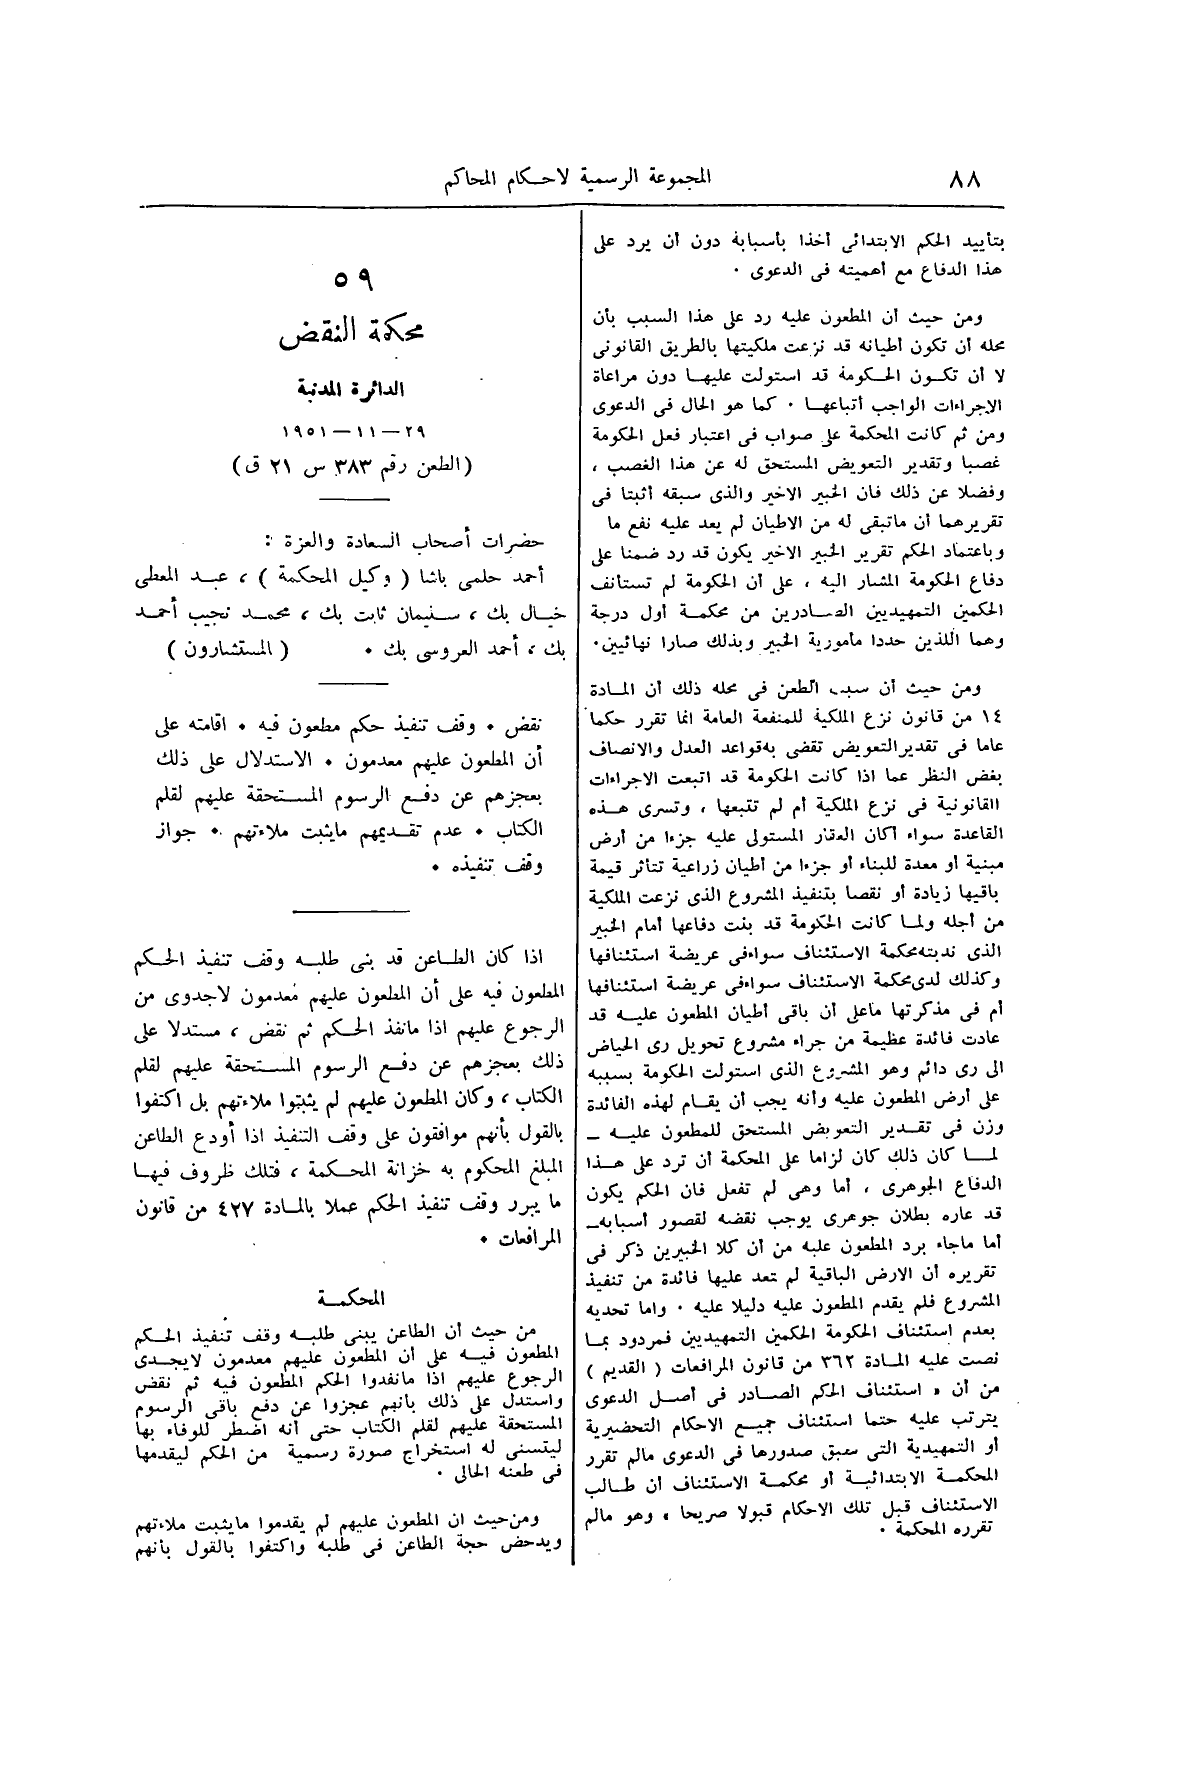 ٨٨
المجموعة الرسمية لاحكام المحاكم
بتأييد الحكم الابتدائى أخذا بأسبابة دون أن يرد على
هذا الدفاع مع أهميته فى الدعوى ٠
ومن حيث أن المطعون عليه رد على هذا السبب بأن
محله أن تكون أطيانه قد نزعت ملكيتها بالطريق القانونى
لا أن تكون الحكومة قد استولت عليها دون مراعاة
الاجراءات الواجب أتباعها ٠ كما هو الحال فى الدعوى
ومن ثم كانت المحكمة على صواب فى اعتبار فعل الحكومة
غصبا وتقدير التعويض المستحق له عن هذا الغصب ،
وفضلا عن ذلك فان الخبير الاخير والذى سبقه أثبتا فى
تقريرهما أن ماتبقى له من الاطيان لم يعد عليه نفع ما
وباعتماد الحكم تقرير الخبير الاخير يكون قد رد ضمنا على
دفاع الحكومة المشار اليه ، على أن الحكومة لم تستانف
الحكمين التمهيديين الصادرين من محكمة أول درجة
وهما اللذين حددا مأمورية الخبير وبذلك صارا نهائيين٠
ومن حيث أن سبب الطعن فى محله ذلك أن المادة
١٤ من قانون نزع الملكية للمنفعة العامة انما تقرر حكما
عاما فى تقدير التعويض تقضى به قواعد العدل والانصاف
بغض النظر عما اذا كانت الحكومة قد اتبعت الاجراءات
القانونية فى نزع الملكية أم لم تتبعها ، وتسرى هذه
القاعدة سواء أكان العقار المستولى عليه جزءا من أرض
مبنية أو معدة للبناء أو جزءا من أطيان زراعية تتأثر قيمة
باقيها زيادة أو نقصا بتنفيذ المشروع الذى نزعت الملكية
من أجله ولما كانت الحكومة قد بنت دفاعها أمام الخبير
الذى ندبته محكمة الاستئناف سواء فى عريضة استئنافها
وكذلك لدى محكمة الاستئناف سواء فى عريضة استئنافها
أم فى مذكرتها ماعلى أن باقى أطيان المطعون عليه قد
عادت فائدة عظيمة من جراء مشروع تحويل رى الحياض
الى رى دائم وهو المشروع الذى استولت الحكومة بسببه
على أرض المطعون عليه وأنه يجب أن يقام لهذه الفائدة
وزن فى تقدير التعويض المستحق للمطعون عليه ــ
لما كان ذلك كان لزاما على المحكمة أن ترد على هذا
الدفاع الجوهرى ، أما وهى لم تفعل فان الحكم يكون
قد عاره بطلان جوهرى يوجب نقضه لقصور أسبابه ــ
أما ماجاء برد المطعون عليه من أن كلا الخبيرين ذكر فى
تقريره أن الارض الباقية لم تعد عليها فائدة من تنفيذ
المشروع فلم يقدم المطعون عليه دليلا عليه ٠ واما تحديه
بعدم استئناف الحكومة الحكمين التمهيديين فمردود بما
نصت عليه المادة ٣٦٢ من قانون المرافعات ( القديم )
من أن « استئناف الحكم الصادر فى أصل الدعوى
يترتب عليه حتما استئناف جميع الاحكام التحضيرية
أو التمهيدية التى سبق صدورها فى الدعوى مالم تقرر
المحكمة الابتدائية أو محكمة الاستئناف أن طالب
الاستئناف قبل تلك الاحكام قبولا صريحا » وهو مالم
تقرره المحكمة ٠
٥٩
محكمة النقض
الدائرة المدنية
٢٩ – ١١ – ١٩٥١
(الطعن رقم ٣٨٣ س ٢١ ق)
حضرات أصحاب السعادة والعزة :
أحمد حلمى باشا ( وكيل المحكمة ) ، عبد المعطى
خيال بك ، سليمان ثابت بك ، محمد نجيب أحمد
بك ، أحمد العروسى بك ٠ ( المستشارون )
نقض ٠ وقف تنفيذ حكم مطعون فيه ٠ اقامته على
أن المطعون عليهم معدمون ٠ الاستدلال على ذلك
بعجزهم عن دفع الرسوم المستحقة عليهم لقلم
الكتاب ٠ عدم تقديمهم مايثبت ملاءتهم ٠ جواز
وقف تنفيذه ٠
اذا كان الطاعن قد بنى طلبه وقف تنفيذ الحكم
المطعون فيه على أن المطعون عليهم معدمون لاجدوى من
الرجوع عليهم اذا مانفذ الحكم ثم نقض ، مستدلا على
ذلك بعجزهم عن دفع الرسوم المستحقة عليهم لقلم
الكتاب ، وكان المطعون عليهم لم يثبتوا ملاءتهم بل اكتفوا
بالقول بأنهم موافقون على وقف التنفيذ اذا أودع الطاعن
المبلغ المحكوم به خزانة المحكمة ، فتلك ظروف فيها
ما يبرر وقف تنفيذ الحكم عملا بالمادة ٤٢٧ من قانون
المرافعات ٠
المحكمة
من حيث أن الطاعن يبنى طلبه وقف تنفيذ الحكم
المطعون فيه على أن المطعون عليهم معدمون لايجدى
الرجوع عليهم اذا مانفدوا الحكم المطعون فيه ثم نقض
واستدل على ذلك بأنهم عجزوا عن دفع باقى الرسوم
المستحقة عليهم لقلم الكتاب حتى أنه اضطر للوفاء بها
ليتسنى له استخراج صورة رسمية من الحكم ليقدمها
فى طعنه الحالى ٠
ومن حيث ان المطعون عليهم لم يقدموا مايثبت ملاءتهم
ويدحض حجة الطاعن فى طلبه واكتفوا بالقول بأنهم